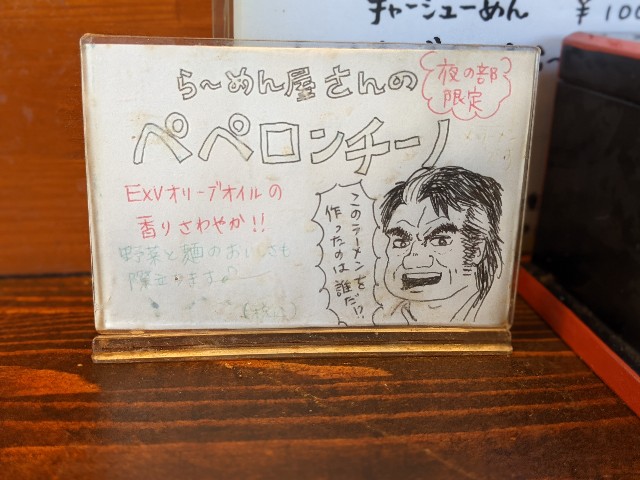 チャーシューめん ¥100
ら〜めん屋さんの
夜の部
限定
ペペロンチーノ
EXVオリーブオイルの
香りさわやか!!
野菜と麺のおいしさも
際立ちます♪
このラーメンを
作ったのは誰だ!?